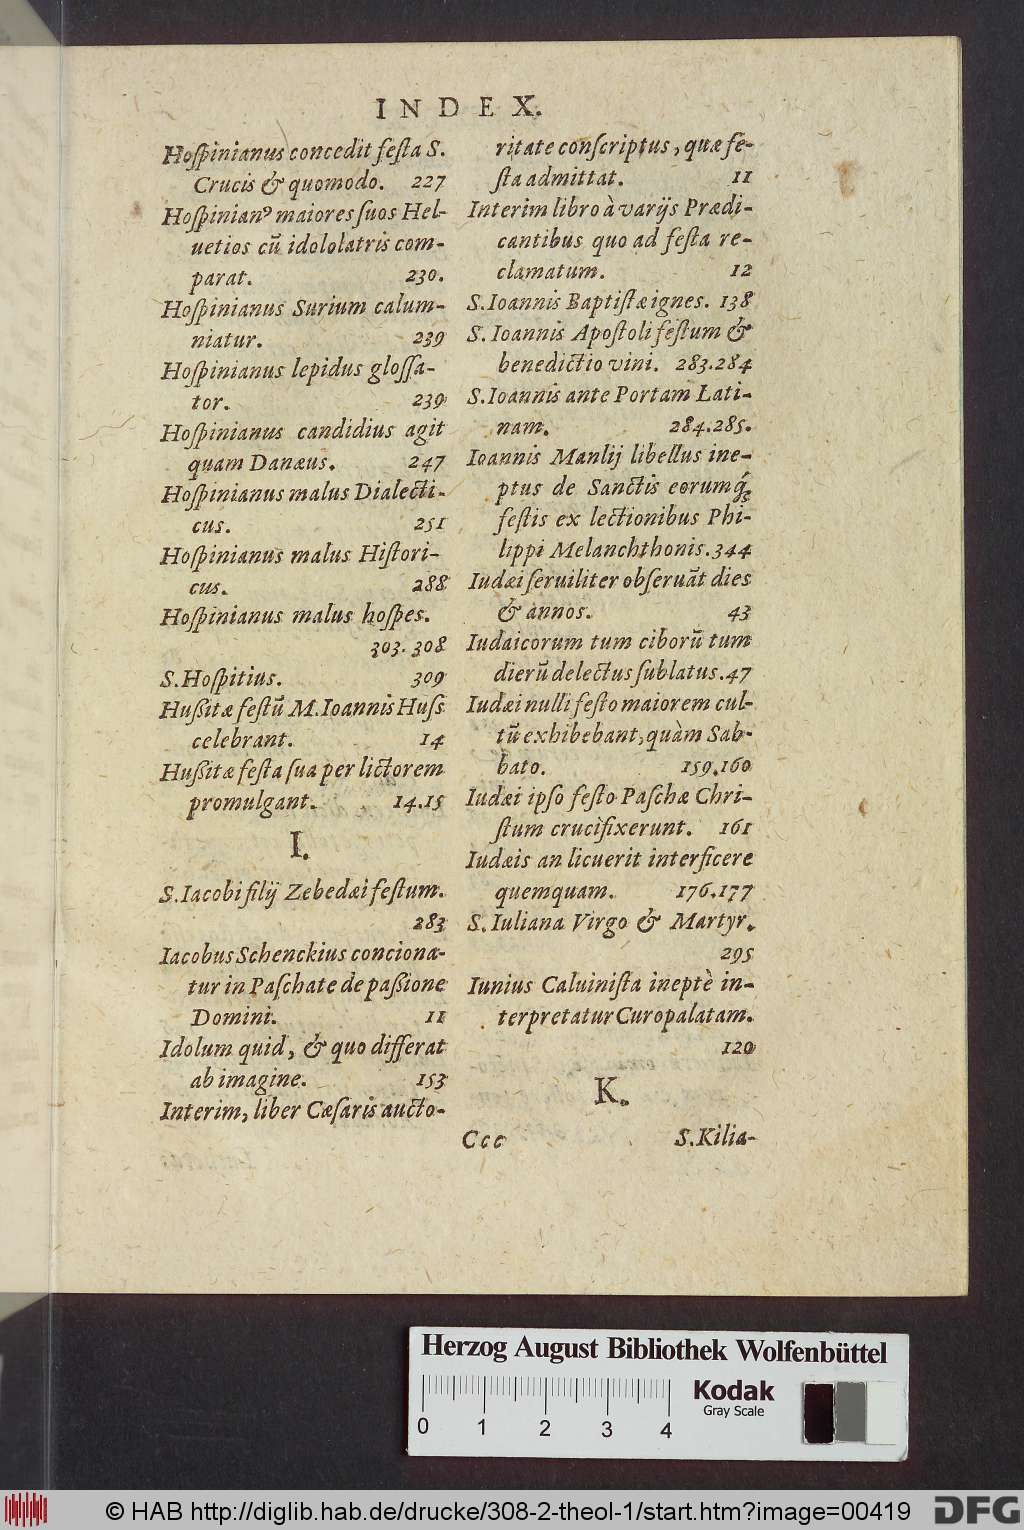 INDEX.
Hoſpinianus concedit feſta S.
Crucis & quomodo. 227
Hoſpinianꝰ maiores ſuos Hel-
uetios cū idololatris com-
parat. 230.
Hoſpinianus Surium calum-
niatur. 239
Hoſpinianus lepidus gloſſa-
tor. 239
Hoſpinianus candidius agit
quam Danæus. 247
Hoſpinianus malus Dialecti-
cus. 251
Hoſpinianus malus Hiſtori-
cus. 288
Hoſpinianus malus hoſpes.
303. 308
S. Hoſpitius. 309
Huſsitæ feſtū M. Ioannis Huſs
celebrant. 14
Huſsitæ feſta ſua per lictorem
promulgant. 14.15
I.
S. Iacobi filij Zebedæi feſtum.
283
Iacobus Schenckius conciona-
tur in Paſchate de paſsione
Domini. 11
Idolum quid, & quo differat
ab imagine. 153
Interim, liber Cæſaris aucto-
ritate conſcriptus, quæ fe-
ſta admittat. 11
Interim libro à varijs Prædi-
cantibus quo ad feſta re-
clamatum. 12
S. Ioannis Baptiſtæ ignes. 138
S. Ioannis Apoſtoli feſtum &
benedictio vini. 283.284
S. Ioannis ante Portam Lati-
nam. 284.285.
Ioannis Manlij libellus ine-
ptus de Sanctis eorumq́;
feſtis ex lectionibus Phi-
lippi Melanchthonis. 344
Iudæi ſeruiliter obſeruāt dies
& annos. 43
Iudaicorum tum ciborū tum
dierū delectus ſublatus. 47
Iudæi nulli feſto maiorem cul-
tū exhibebant, quàm Sab-
bato. 159.160
Iudæi ipſo feſto Paſchæ Chri-
ſtum crucifixerunt. 161
Iudæis an licuerit interficere
quemquam. 176.177
S. Iuliana Virgo & Martyr.
295
Iunius Caluiniſta ineptè in-
terpretatur Curopalatam.
120
K.
Ccc S. Kilia-
Herzog August Bibliothek Wolfenbüttel
0 1 2 3 4
Kodak
Gray Scale
© HAB http://diglib.hab.de/drucke/308-2-theol-1/start.htm?image=00419
DFG